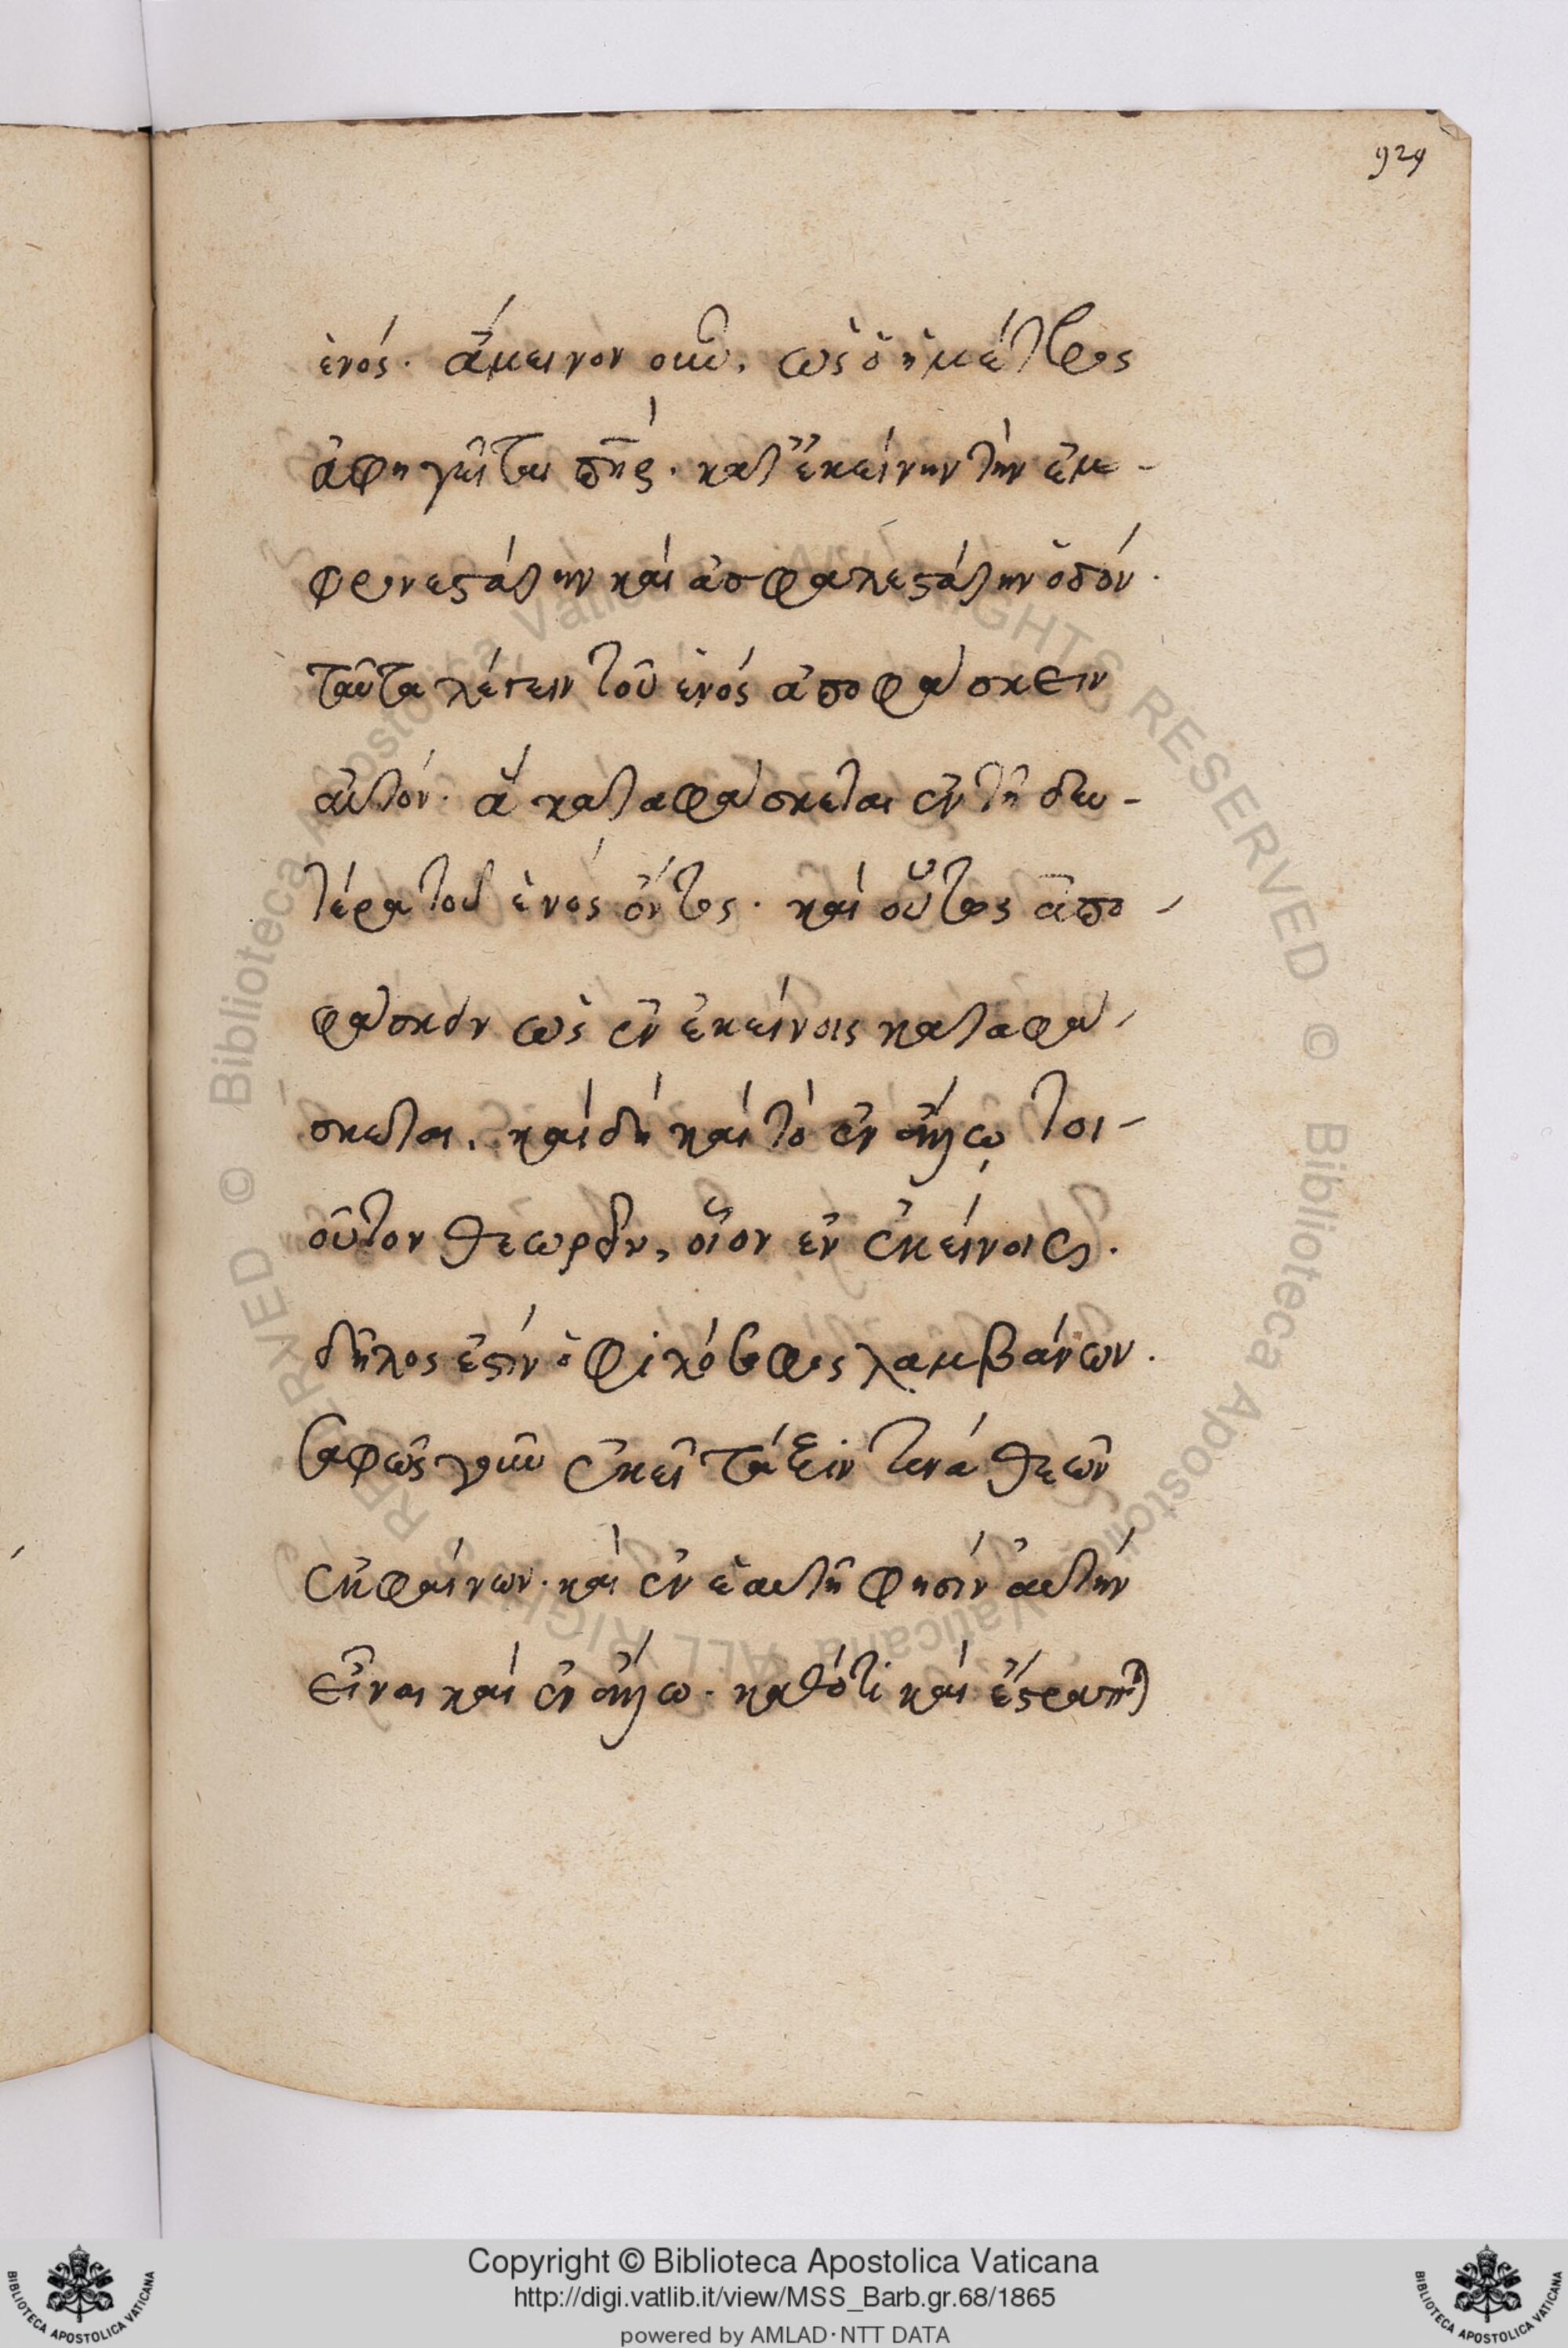 924
ἑνός. ἄμεινον οὖν, ὡς ὁ ἡμέτερος
ἀφηγεῖται πηρ. κατ' ἐκείνην τὴν ἐμ-
φρονεστάτην καὶ ἀσφαλεστάτην ὁδόν.
ταῦτα λέγειν τοῦ ἑνός ἀποφάσκειν
αὐτόν. ἃ καταφάσκεται ἐν τῇ δευ-
τέρα τοῦ ἑνός ὄντος. καὶ οὕτως ἀπο-
φάσκειν ὡς ἐν ἐκείνοις καταφά-
σκεται. καὶ δὴ καὶ τὸ ἐν ἄλλῳ τοι-
οῦτον θεωρεῖν, οἷον ἐν ἐκείνοις.
δῆλος ἐστὶν ὁ φιλόσοφος λαμβάνων.
σαφῶς γοῦν ἐκεῖ τάξιν τινὰ θεῶν
ἐκφαίνων. καὶ ἐν ἑαυτῇ φησὶν αὐτὴν
εἶναι καὶ ἐν ἄλλω. καθότι καὶ ἔστραπται
Copyright © Biblioteca Apostolica Vaticana
http://digi.vatlib.it/view/MSS_Barb.gr.68/1865
powered by AMLAD·NTT DATA
BIBLIOTECA APOSTOLICA VATICANA
BIBLIOTECA APOSTOLICA VATICANA